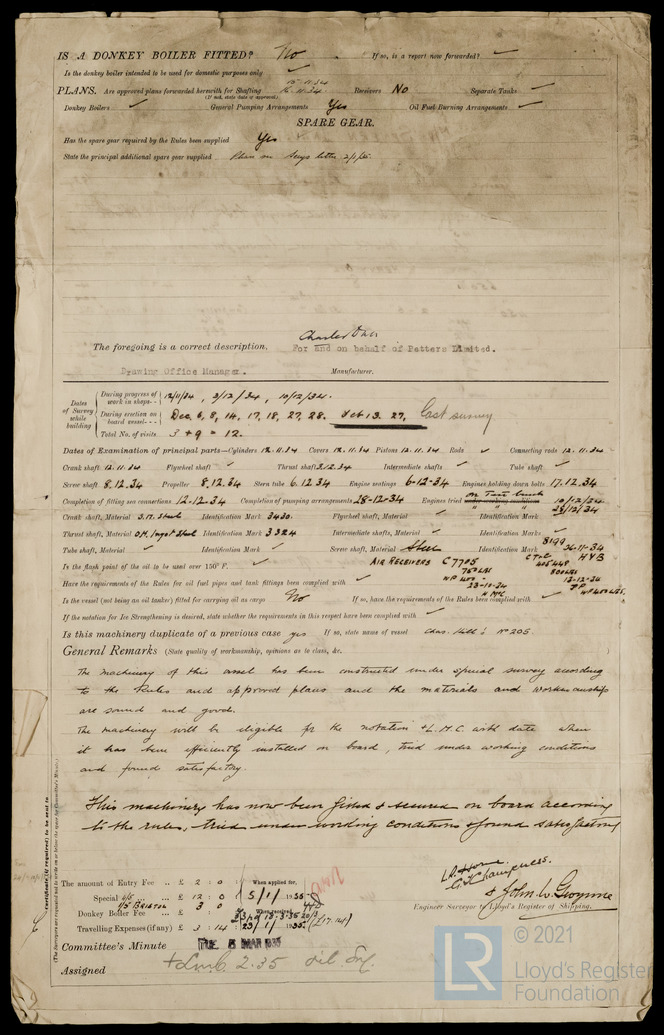 IS A DONKEY BOILER FITTED? No If so, is a report now forwarded? ✓
Is the donkey boiler intended to be used for domestic purposes only ✓
15.11.34
PLANS. Are approved plans forwarded herewith for Shafting 16.11.34 Receivers No Separate Tanks ✓
(If not, state date of approval)
Donkey Boilers ✓ General Pumping Arrangements Yes Oil Fuel Burning Arrangements ✓
SPARE GEAR.
Has the spare gear required by the Rules been supplied Yes
State the principal additional spare gear supplied letter 2/1/35.
The foregoing is a correct description,
For and on behalf of Petters Limited.
Drawing Office Manager. Manufacturer.
Dates of Survey while building
During progress of work in shops - - 12/11/34, 3/12/34, 10/12/34.
During erection on board vessel - - - Dec. 6, 8, 14, 17, 18, 27, 28. Feb 13. 27. Last survey
Total No. of visits 3 + 9 = 12.
Dates of Examination of principal parts—Cylinders 12.11.34 Covers 12.11.34 Pistons 12.11.34 Rods ✓ Connecting rods 12.11.34
Crank shaft 12.11.34 Flywheel shaft ✓ Thrust shaft 3.12.34 Intermediate shafts ✓ Tube shaft ✓
Screw shaft 8.12.34 Propeller 8.12.34 Stern tube 6.12.34 Engine seatings 6-12-34 Engines holding down bolts 17.12.34
Completion of fitting sea connections 12-12-34 Completion of pumping arrangements 28-12-34 Engines tried under working conditions on Test bench 10/12/34
28/12/34
Crank shaft, Material S.M. Steel Identification Mark 3430. Flywheel shaft, Material ✓ Identification Mark ✓
Thrust shaft, Material O.H. Ingot Steel Identification Mark 3324 Intermediate shafts, Material ✓ Identification Marks ✓
Tube shaft, Material ✓ Identification Mark ✓ Screw shaft, Material Steel Identification Mark 8199
26-11-34
HYB
Is the flash point of the oil to be used over 150° F. ✓ AIR RECEIVERS C 7705
750 LBS
WP 400
23-10-34
800 LBS
13-12-34
WP 400 LBS.
Have the requirements of the Rules for oil fuel pipes and tank fittings been complied with ✓
Is the vessel (not being an oil tanker) fitted for carrying oil as cargo No If so, have the requirements of the Rules been complied with ✓
If the notation for Ice Strengthening is desired, state whether the requirements in this respect have been complied with ✓
Is this machinery duplicate of a previous case yes If so, state name of vessel Chas. Hill's No 205.
General Remarks (State quality of workmanship, opinions as to class, &c.
The machinery of this vessel has been constructed under special survey according
to the Rules and approved plans and the materials and workmanship
are sound and good.
The machinery will be eligible for the notation +L.M.C. with date when
it has been efficiently installed on board, tried under working conditions
and found satisfactory.
This machinery has now been fitted & secured on board according
to the rules, tried under working conditions & found satisfactory
The amount of Entry Fee .. £ 2 : 0 : When applied for,
Special £ 12 : 0 : 5/1/1935
4/5 BRISTOL 3 0
Donkey Boiler Fee ... £ When received,
Travelling Expenses (if any) £ 3 : 14 : 23/1/1935. (£17.14)
& John W. Gwynne
Engineer Surveyor to Lloyd's Register of Shipping.
Committee's Minute TUE. 5 MAR 1935
Assigned + L.M.C. 2.35 Oil Eng.
Certificate (if required) to be sent to
(The Surveyors are requested not to write on or below the space for Committee's Minute.)
© 2021
LR
Lloyd's Register
Foundation